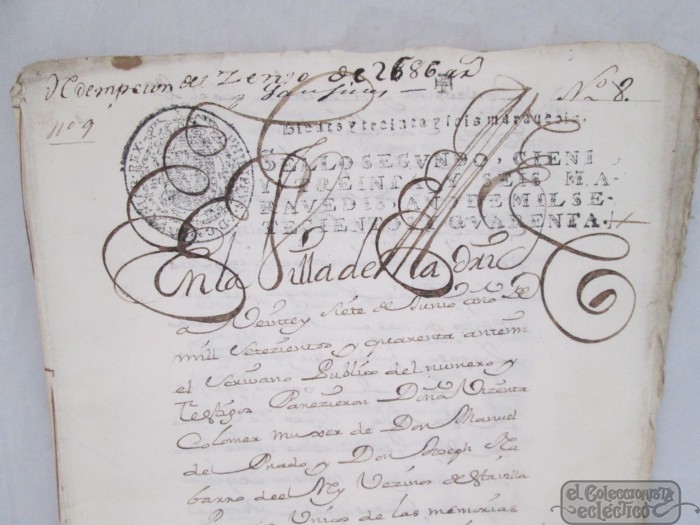 Redempcion de Zenso de 2686 rs
y Yantares
Nº 8.
nº 9
Cientos y treinta y seis maravedis.
SELLO SEGVNDO, CIENT
Y TREINTA Y SEIS MA-
RAVEDIS, AÑO DE MIL SE-
TECIENTOS Y QVARENTA.
En la Villa de Madrid
a Veintey siete de Junio año de
mill setezientos y quarenta antemi
el Scrivano Publico del numero y
Testigos Parezieron Doña Vizenta
Colomer muxer de Don Manuel
de Prado y Don Joseph Na
barro del Rey Vezinos de esta villa
Unico de las memorias
el Coleccionista
ecléctico